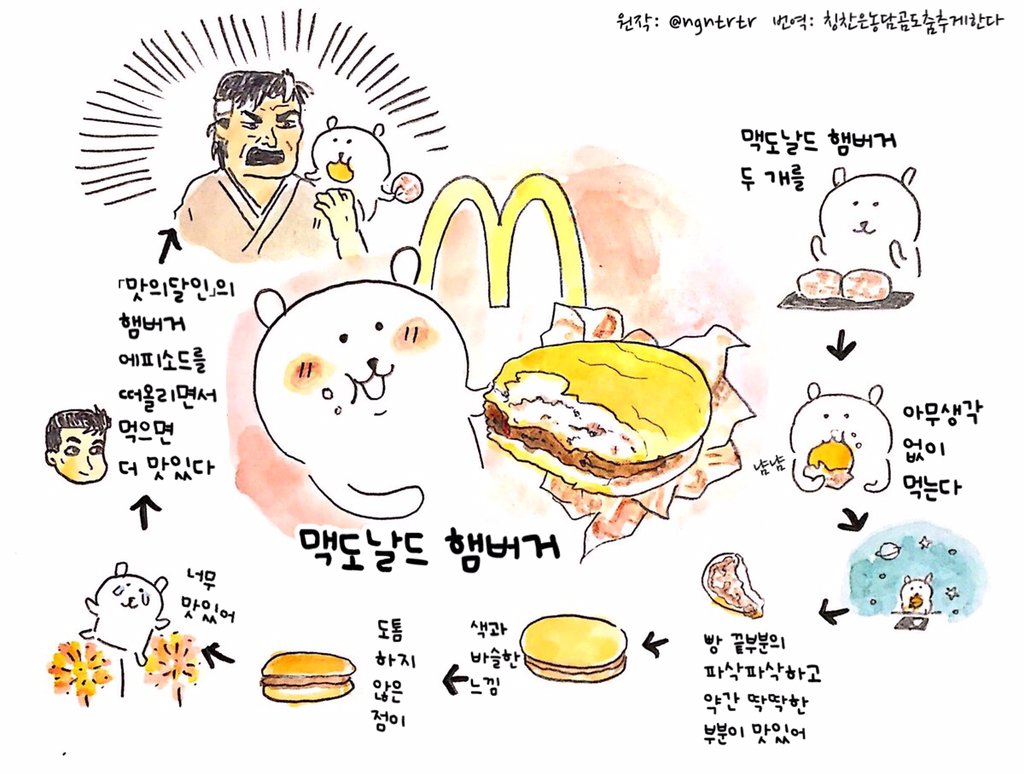 원작: @ngntrtr 번역: 칭찬은농담곰도춤추게한다
맥도날드 햄버거
두 개를
아무생각
없이
먹는다
냠냠
빵 끝부분의
파삭파삭하고
약간 딱딱한
부분이 맛있어
색과
바슬한
느낌
도톰
하지
않은
점이
너무
맛있어
「맛의달인」의
햄버거
에피소드를
떠올리면서
먹으면
더 맛있다
맥도날드 햄버거